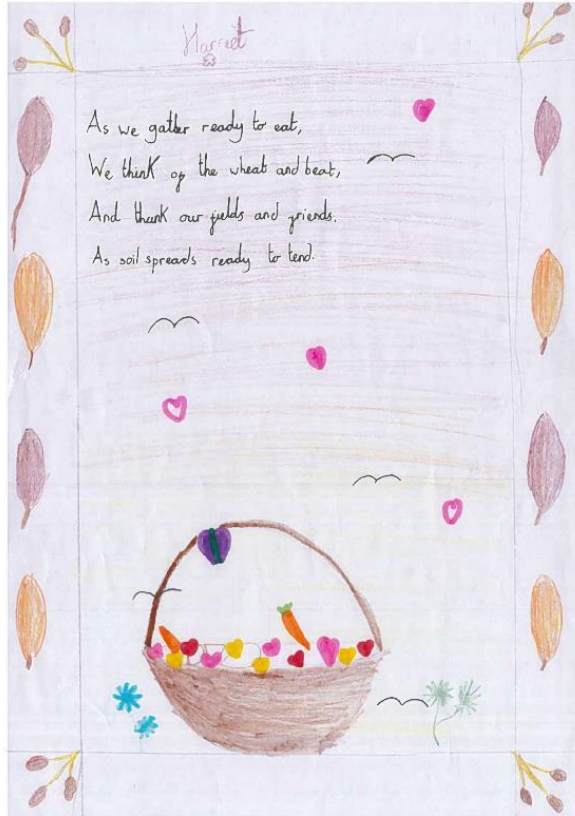 Harriet
As we gather ready to eat,
We think of the wheat and beat,
And thank our fields and friends.
As soil spreads ready to tend.